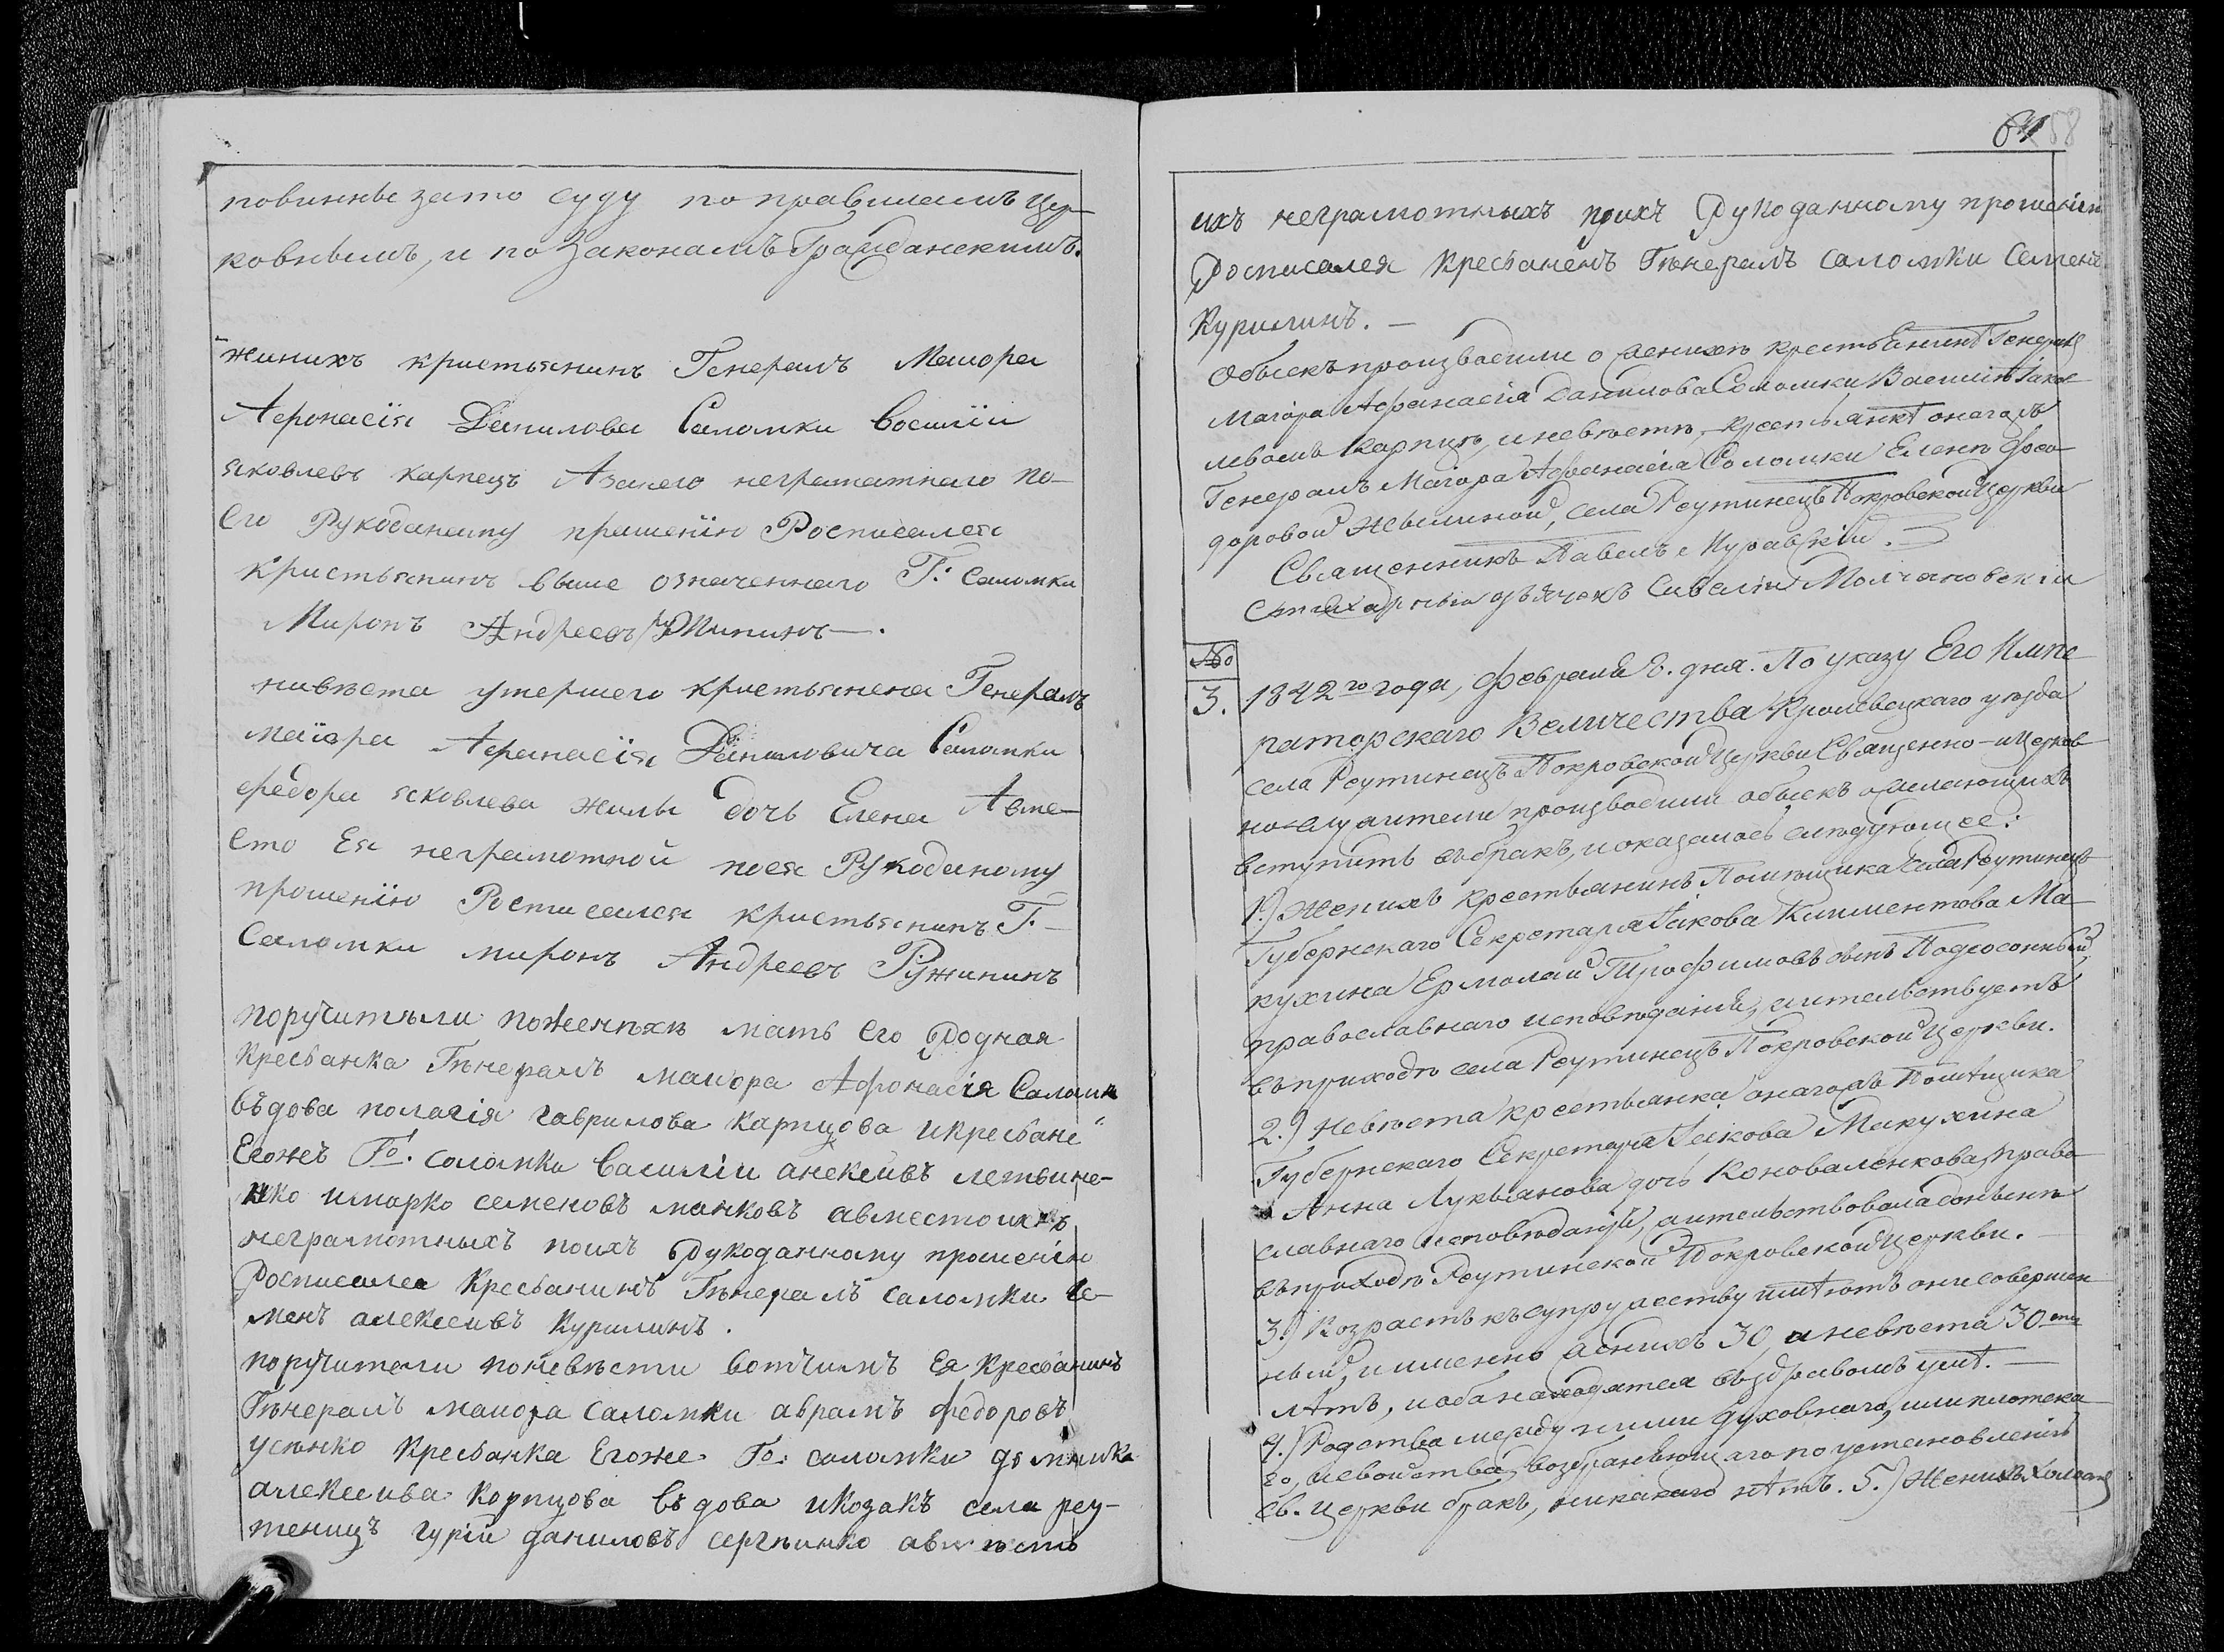 повинны зато суду по правиламъ Цер-
ковнымъ, и по Законамъ Гражданскимъ.
жинихъ кристьянинъ Генералъ Маиора
Афонасія Данилова Саломки Василіи
яковлевъ карпецъ Азанего неграматнаго по-
его Рукоданому прашенію Росписался
кристьянинъ выше означеннаго Г: Саломки
Миронъ Андреевъ
нивѣста умершего кристьянена Генералъ
маіора Афанасія Даниловича Саломки
федора яковлева жилы дочь Елена Авме-
сто Ея неграмотной поея Рукоданому
прошенію Росписался кристьянинъ Г-
Саломки миронъ Андреевъ Ружининъ
поручитѣли поженѣхѣ мать его Родная
Кресьанка Гѣнералъ маиора Афонасія Саломк
въдова полагія гаврилова карпцова икресьане
Егожъ Го. саломки василіи алексѣивъ летвине-
нко имарко семеновъ манковъ авместоихъ
неграмотныхъ поихъ Рукоданному прошенію
Росписался Кресьанинъ Гѣнералъ саломки се-
менъ алексѣивъ Курилинъ.
поручители поневѣсти вотчимъ Ея Кресьанинъ
Гѣнералъ маиора саломки аврамъ федоровъ
усѣнко Кресьанка Егоже Го: саломки домника
алексеива корпцова въдова икозакъ села реу-
теницъ гурій даниловъ сергѣинко авмѣсть
64 58
ихъ неграмотныхъ поихъ Рукоданному прошенію
Росписался Кресьаненъ Гѣнералъ саломки Семенъ
Курилинъ. —
Обыскъ производили о женихѣ крестьянинѣ Генералъ
Маіора Афанасія Данилова Соломки, Василіѣ Іаков-
левомъ Карпцѣ, и невѣстѣ, крестьянкѣ онагожъ
Генералъ Маіора Афанасія Соломки Еленѣ Фео-
доровой Жилиной, села Реутинецъ Покровской Церкви
Священникъ Павелъ Муравскій.
Стихарный дьячекъ Савелій Молчановскій
№
3. 1842го года, февраля 8. дня. По указу Его Импе-
раторскаго Величества Кролевецкаго уѣзда
села Реутинецъ Покровской Церкви Священно-и Церков-
но-служители производили обыскъ о желающихъ
вступить въ бракъ, и оказалось слѣдующее:
1.) Женихъ крестьянинъ Помѣщика села Реутинецъ
Губернскаго Секретаря Іакова Климентова Ма-
кухина Ермолай Трофимовъ сынъ Подсосонный,
православнаго исповѣданія, жительствуетъ
въ приходѣ села Реутинецъ Покровской Церкви.
2.) Невѣста крестьянка онагожъ Помѣщика
Губернскаго Секретаря Іакова Макухина
Анна Лукьянова дочь Коноваленкова, право-
славнаго исповѣданія, жительствовала донынѣ
въ приходѣ Реутинской Покровской Церкви. —
3.) Возрастъ къ супружеству имѣютъ они совершен-
ный, и именно женихъ 30, а невѣста 30ти
лѣтъ, и оба находятся въ здравомъ умѣ. —
4.) Родства между ними духовнаго, или плотска-
го, и свойства, возбраняющаго по установленію
Св. Церкви бракъ, никакого нѣтъ. 5.) Женихъ Холост